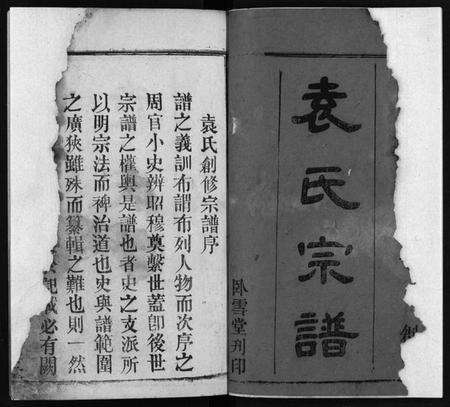 袁氏宗譜
臥雪堂刋印
袁氏創修宗譜序
譜之義訓布謂布列人物而次序之
周官小史辨昭穆奠繫世蓋卽後世
宗譜之權輿是譜也者史之支派所
以明宗法而裨治道也史與譜範圍
之廣狹雖殊而纂輯之難也則一然
必有闕